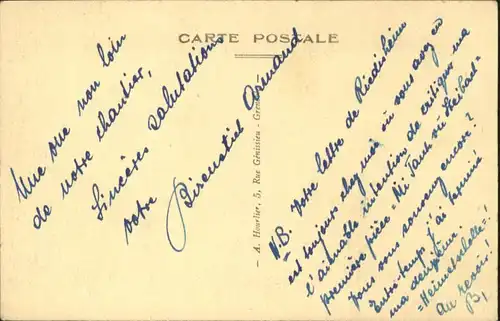 CARTE POSTALE
Une vue non loin
de notre chantier,
Sincères salutations
votre
Armand
A. Hourlier, 5, Rue Génissieu - Gre
N.B. Votre lettre de Riedisheim
est toujours chez moi où vous avez eu
l'aimable intention de critiquer ma
première pièce = Mi Tante vu Seibach =
Vous vous souvenez encore?
Entre-temps j'ai terminé
ma deuxième.
= Heimetscholle = !
Au revoir!
B,